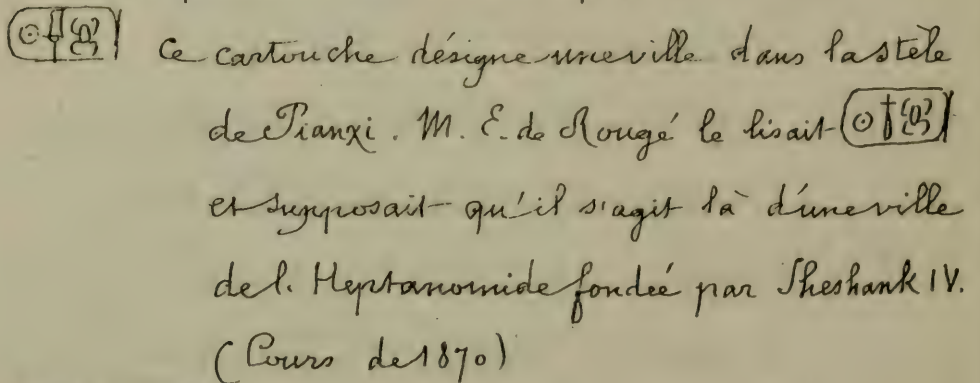 Ce cartouche désigne une ville dans la stèle
de Pianxi. M. E. de Rougé le lisait
et supposait qu'il s'agit là d'une ville
de l'Heptanomide fondée par Sheshank IV.
(Cours de 1870)